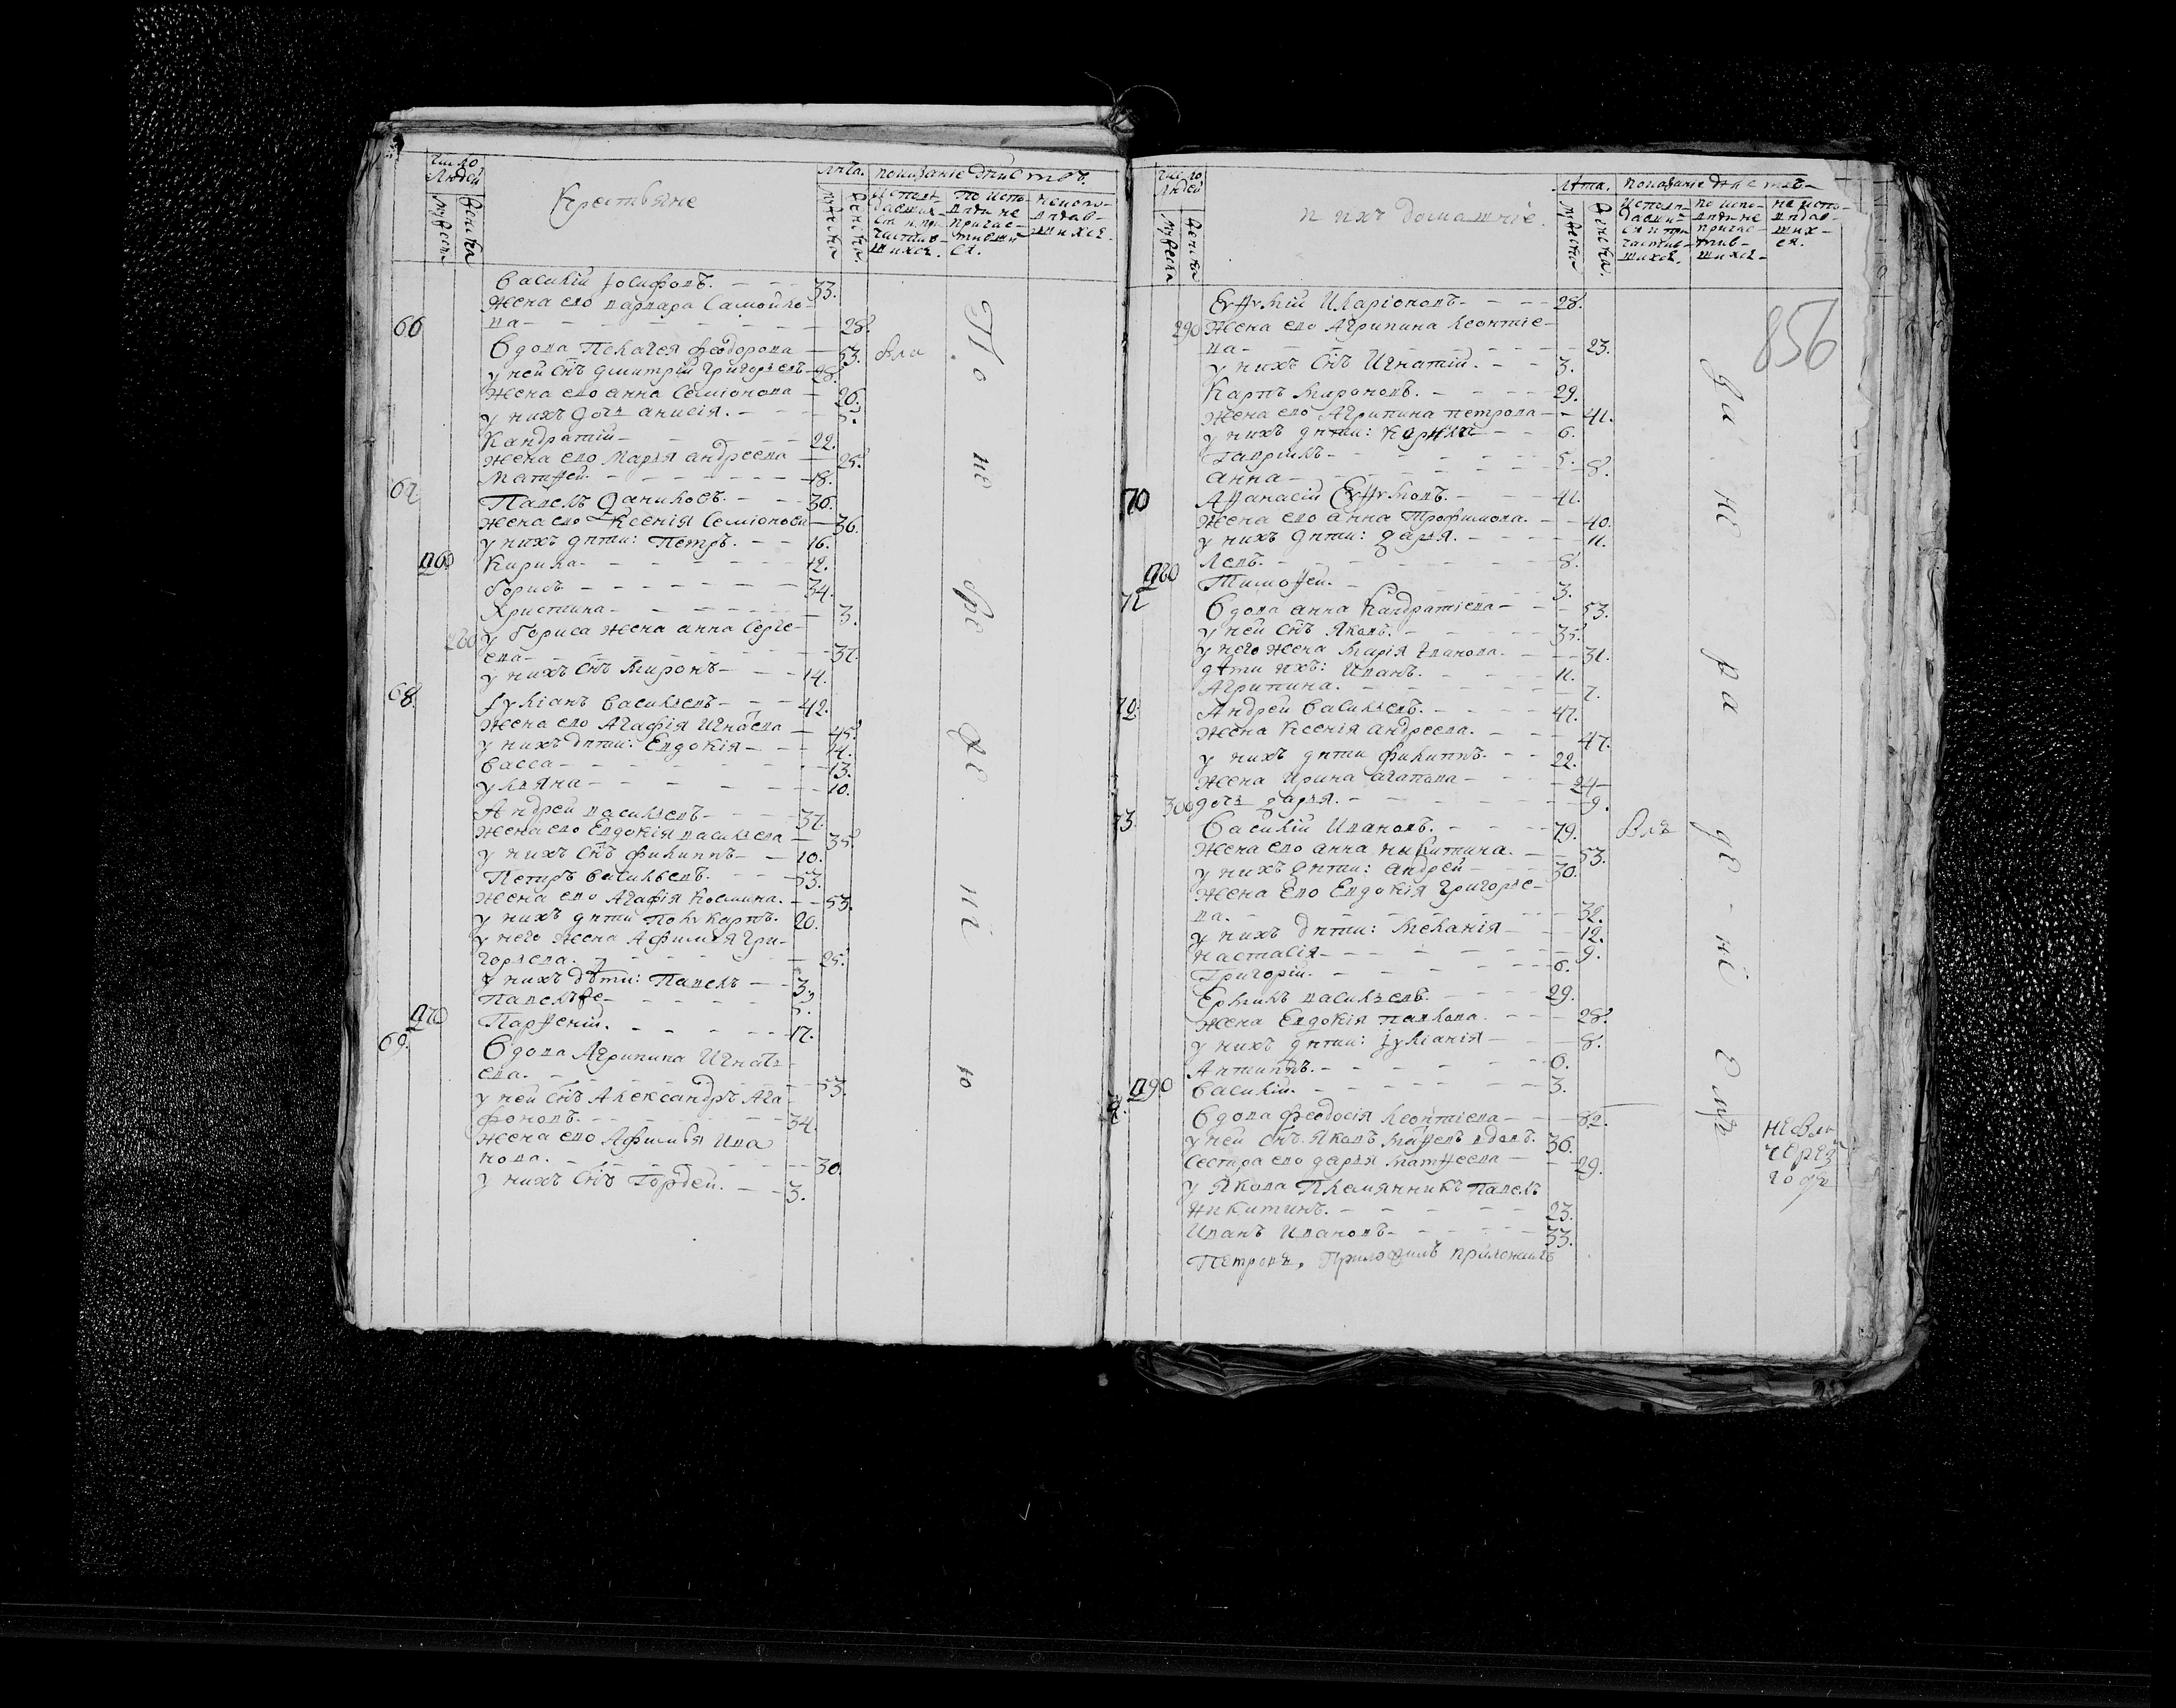 Число Людей
мужеска
женска
Крестьяне
лѣта.
показаніе дѣйствъ.
мужеска
женска
Исповѣдавшихся и причастившихся.
По исповѣди не причастившихся.
неисповѣдавшихся.
Василій Іосифовъ. 33.
Жена ево варвара Самойло-
ва 28.
66
Вдова Пелагея Феодорова 53. бли
у ней снъ Дмитрій Григорьевъ 28.
Жена ево анна Семіонова 26.
у нихъ дочь анисія. 5.
Кандратій 22.
Жена ево Марья андреева 25.
Матѳей. 18.
67
Павелъ Даниловъ. 36.
Жена ево Ксенія Семіонова 36.
у нихъ дѣти: Петръ. 16.
260
Кирила 12.
Борисъ 34.
Христина 3.
280
у Бориса жена анна Серге-
ева 37.
у нихъ снъ Миронъ 14.
68.
Іуліанъ Васильевъ 42.
Жена ево Агафія Игнатева 45.
у нихъ дѣти: Евдокія 14.
Васса 13.
ульяна 10.
Андрей васильевъ 37.
Жена ево Евдокія васильева 35.
у нихъ снъ Филиппъ 10.
Петръ Васильевъ. 53.
Жена ево Агафія Космина. 53.
у нихъ дѣти Поликарпъ. 20.
у него жена Афимья Гри-
горьева. 25.
у нихъ дѣти: Павелъ 3.
Павелъ же
270
Парѳеній. 17.
69.
Вдова Агрипина Игнать-
ева. 53.
у ней снъ Александръ Ага-
фоновъ. 34.
Жена ево Афимья Ива
нова. 30.
у нихъ снъ Гордей. 3.
По не бре же ні ю
Число Людей
мужеска
женска
и ихъ домашніе.
лѣта.
показаніе дѣйствъ
мужеска
женска.
Исповѣдавшихся и причастившихся.
по исповѣди не причастившихся
не исповѣдавшихся.
856
Евѳимій Иларіоновъ 28.
290
Жена ево Агрипина Леонтіе-
ва 23.
у нихъ снъ Игнатій. 3.
Карпъ Мироновъ. 29.
Жена ево Агрипина петрова 41.
у нихъ дѣти: 6.
Гаврилъ 5.
анна 8.
70
Аѳанасій Евѳимовъ. 41.
Жена ево анна Трофимова. 40.
у нихъ дѣти: дарья. 11.
Левъ. 8.
280
Тимоѳей. 3.
71
Вдова анна Кандратіева 53.
у ней снъ Яковъ. 35.
у него жена Марія Іванова. 31.
дѣти ихъ: Иванъ. 11.
Агрипина. 7.
72
Андрей Васильевъ. 47.
Жена Ксенія андреева. 47.
у нихъ дѣти филиппъ. 22.
Жена Ирина агапова 24
300
дочь дарья. 9.
73.
Василій Ивановъ. 79. бли
Жена ево анна никитина. 53.
у нихъ дѣти: андрей 30.
Жена ево Евдокія Григорье-
ва. 32.
у нихъ дѣти: Меланія 12.
настасія 9.
Григорій. 6.
Ермилъ васильевъ. 29.
Жена Евдокія павлова. 28.
у нихъ дѣти: Іуліанія 8.
Антипъ. 6.
290
Василій. 3.
Вдова Феодосія Леонтіева 82.
у ней снъ Яковъ Матѳеевъ вдовъ. 36.
Сестра ево дарья Матѳеева 29.
у Якова Племянникъ Павелъ
Никитинъ. 23.
Иванъ Ивановъ 33.
за не ра де ні емъ
не бли
чрезъ
годъ
Петровъ,
приложилъ